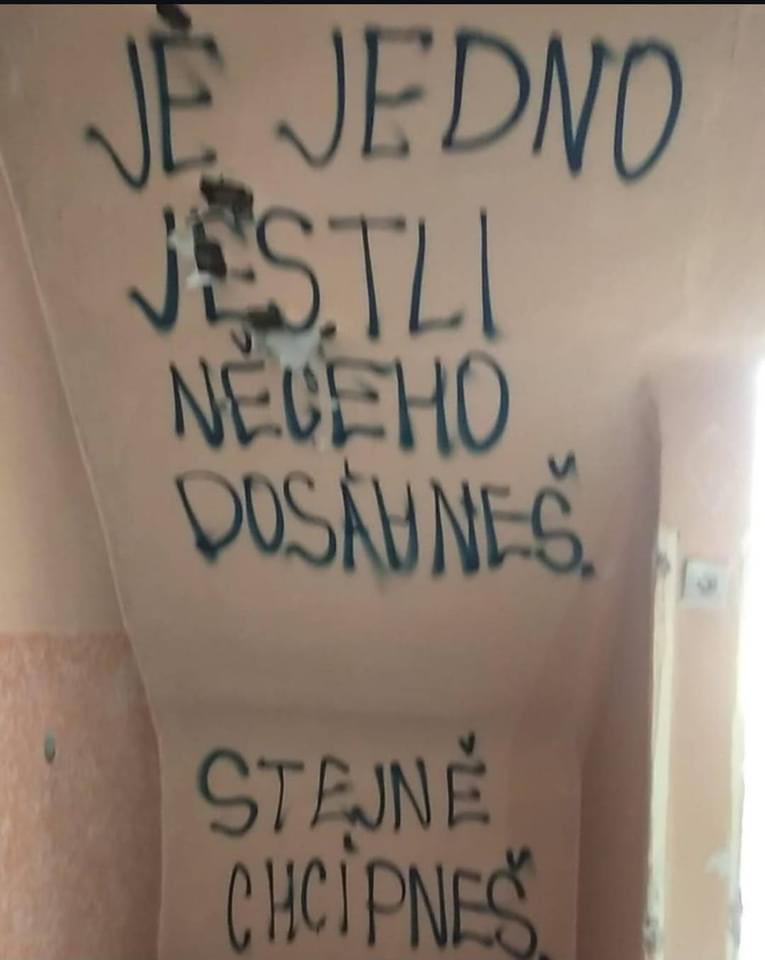 JE JEDNO
JESTLI
NĚČEHO
DOSÁHNEŠ.
STEJNĚ
CHCÍPNEŠ.